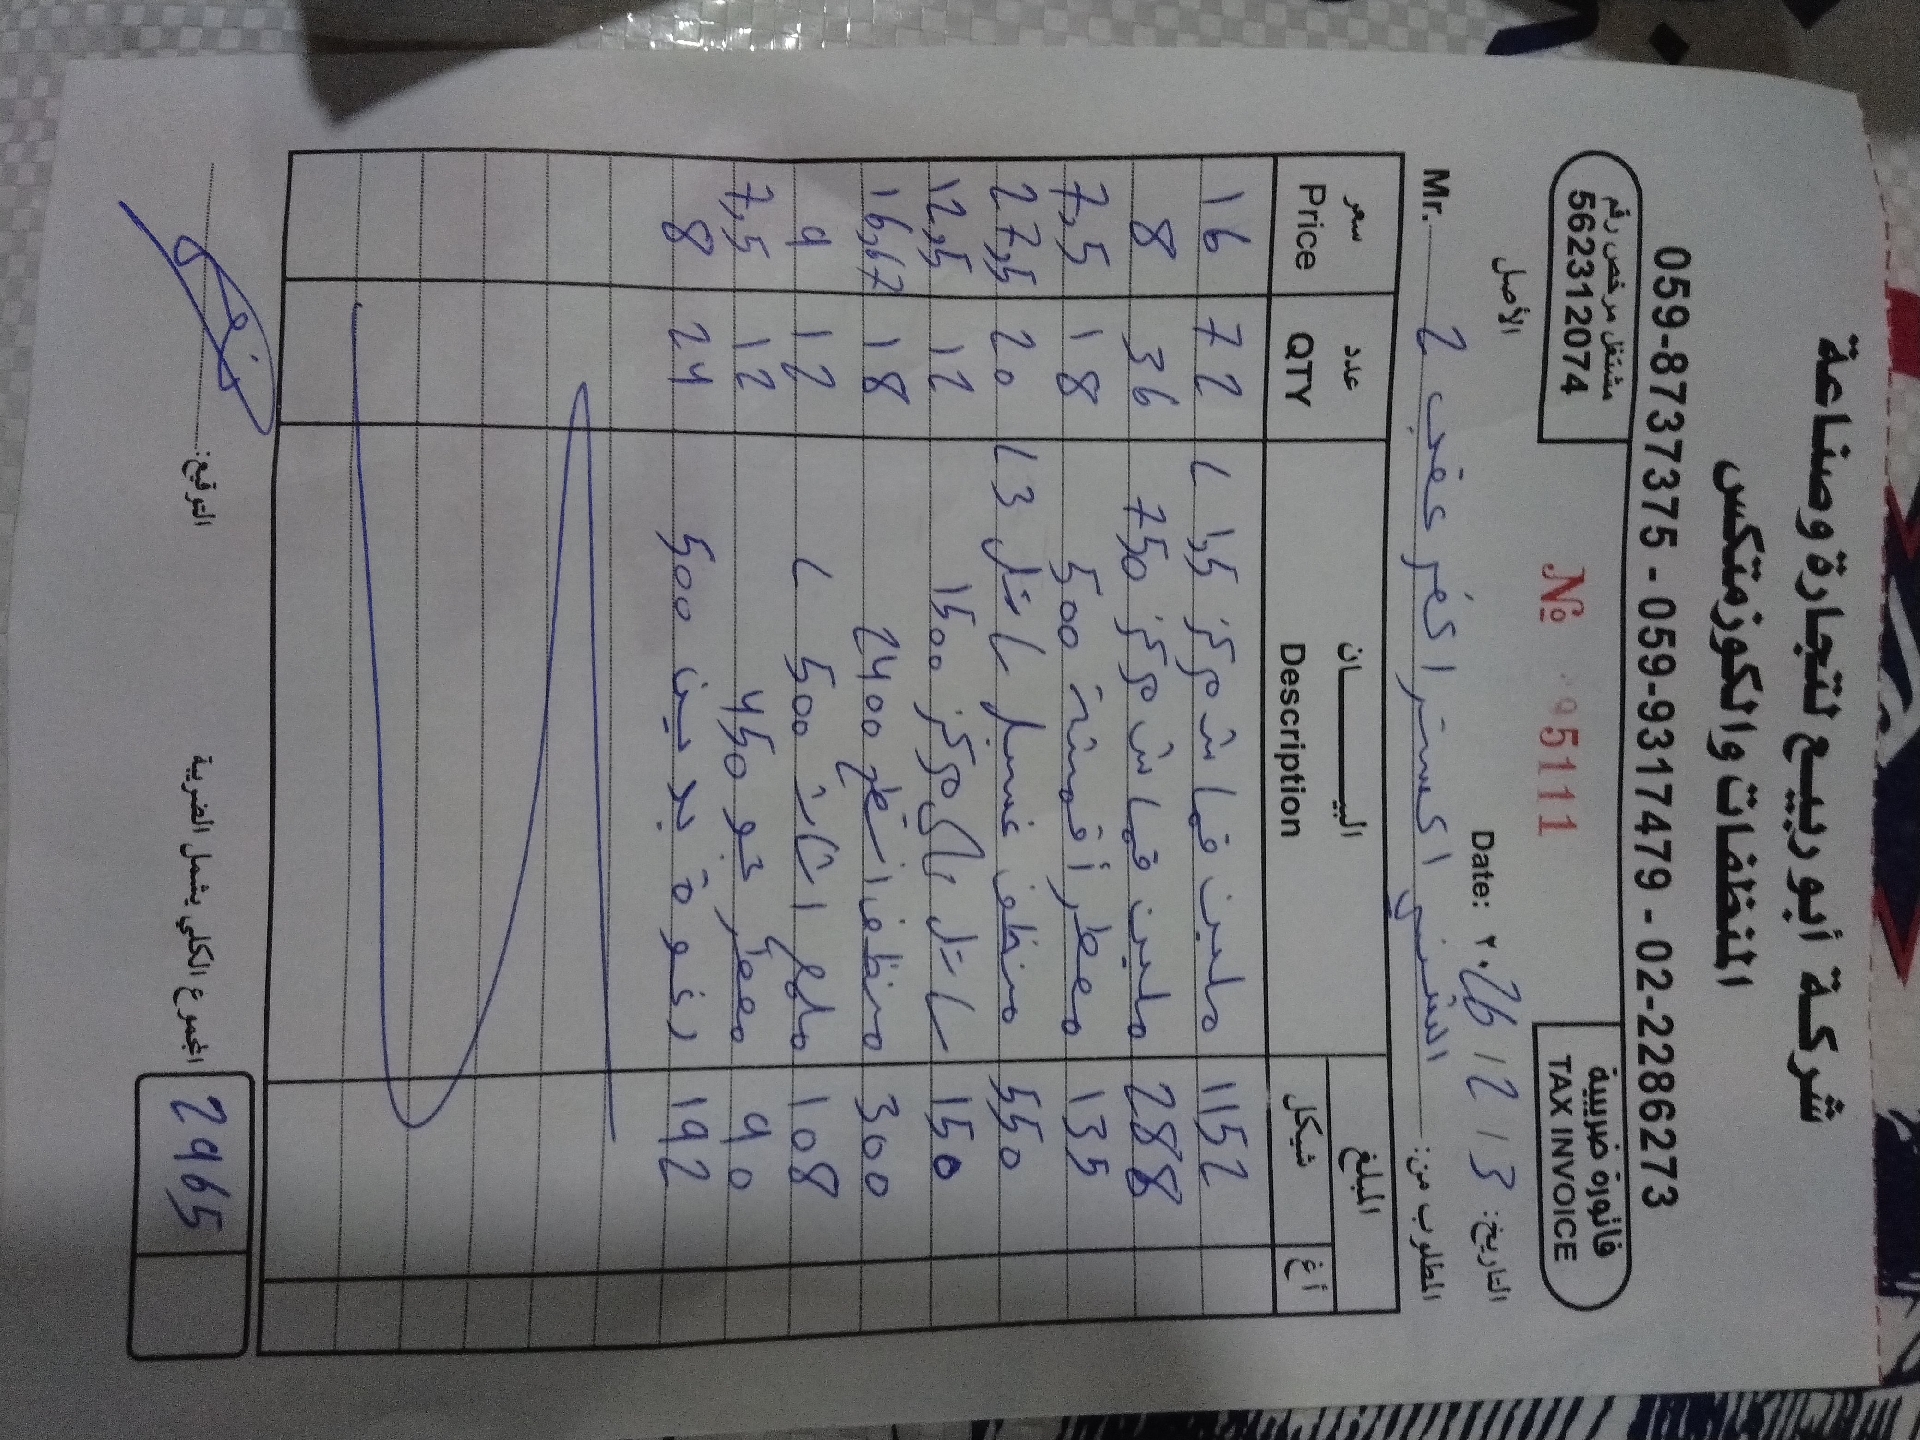 شركة أبو ربيع لتجارة وصناعة
المنظفات والكوزمتكس
059-8737375 - 059-9317479 - 02-2286273
فاتورة ضريبية
TAX INVOICE
№ 95111
مشتغل مرخص رقم
562312074
التاريخ: 13 / 2 / ٢٠26 Date:
الأصل
المطلوب من: السنبل اكسترا كفر عقب 2 Mr.
المبلغ البيـــــــان عدد سعر
شيكل أغ Description QTY Price
1152 ملين قماش مركز 1,5 L 72 16
288 ملين قماش مركز 750 36 8
135 معطر أقمشة 500 18 7,5
550 منظف غسيل سائل 3 L 20 27,5
150 سائل مركز 1500 12 12,5
300 منظف اسطح 2400 18 16,67
108 ملمع اثاث 500 L 12 9
90 معطر جو 450 12 7,5
192 رغوة يدين 500 24 8
2965 المجموع الكلي يشمل الضريبة
التوقيع: